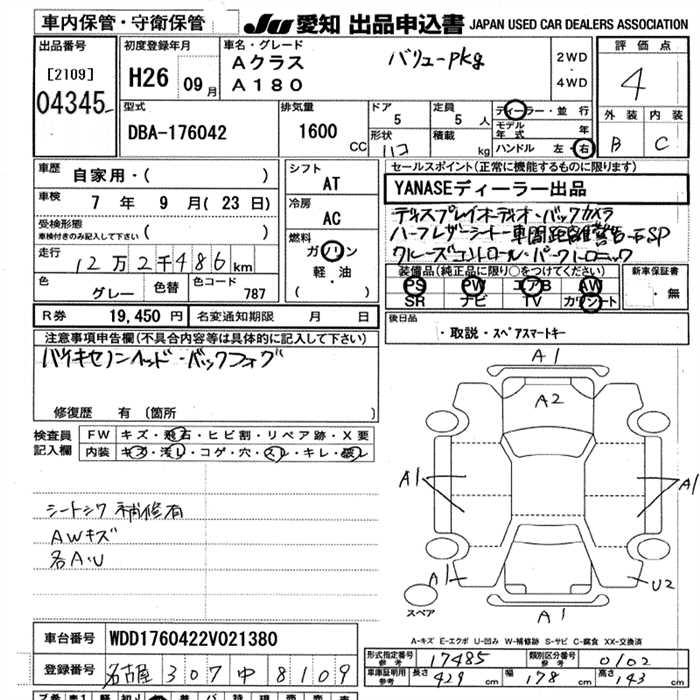 車内保管・守衛保管
JU 愛知 出品申込書 JAPAN USED CAR DEALERS ASSOCIATION
出品番号
[2109]
04345
初度登録年月
H26 09月
車名・グレード
Aクラス バリューpkg
A180
2WD
・
4WD
評価点
4
外装 内装
B C
型式
DBA-176042
排気量
1600 CC
ドア
5
形状
ハコ
定員
5人
積載
kg
ディーラー・並行
モデル年式 年
ハンドル 左・右
車歴
自家用・( )
車検
7年 9月(23日)
受検形態
車検付きのみ記入して下さい ( )
走行
12万2千486km
色
グレー
色替
色コード
787
シフト
AT
冷房
AC
燃料
ガソリン
軽・油
( )
セールスポイント(正常に機能するものに限ります)
YANASEディーラー出品
ディスプレイオーディオ・バックカメラ
ハーフレザーシート・車間距離警告・石SP
クルーズコントロール・パークトロニック
装備品(純正品に限り○をつけてください)
PS PW エアB AW
SR ナビ TV カワシート
新車保証書
・無
R券 19,450円 名変通知期限 月 日
後日品
・取説・スペアスマートキー
注意事項申告欄(不具合内容等は具体的に記入して下さい)
バイキセノンヘッド・バックフォグ
修復歴 有 (箇所 )
検査員
記入欄
FW キズ・飛石・ヒビ割・リペア跡・X要
内装 キズ・汚レ・コゲ・穴・スレ・キレ・破レ
シートシワ 補修有
AWキズ
各A・U
A1
A2
A1
A1
A1
U2
A1
スペア
A-キズ E-エクボ U-凹み W-補修跡 S-サビ C-腐食 XX-交換済
車台番号 WDD1760422V021380
登録番号 名古屋 307 中 8109
形式指定番号
参考
17485
類別区分番号
参考
0102
車庫証明用
参考
長さ 429 cm 幅 178 cm 高さ 143 cm